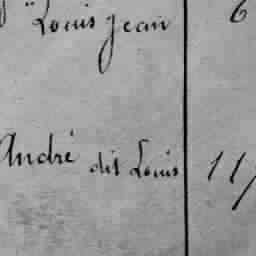 " Louis Jean 6
André dit Louis 11